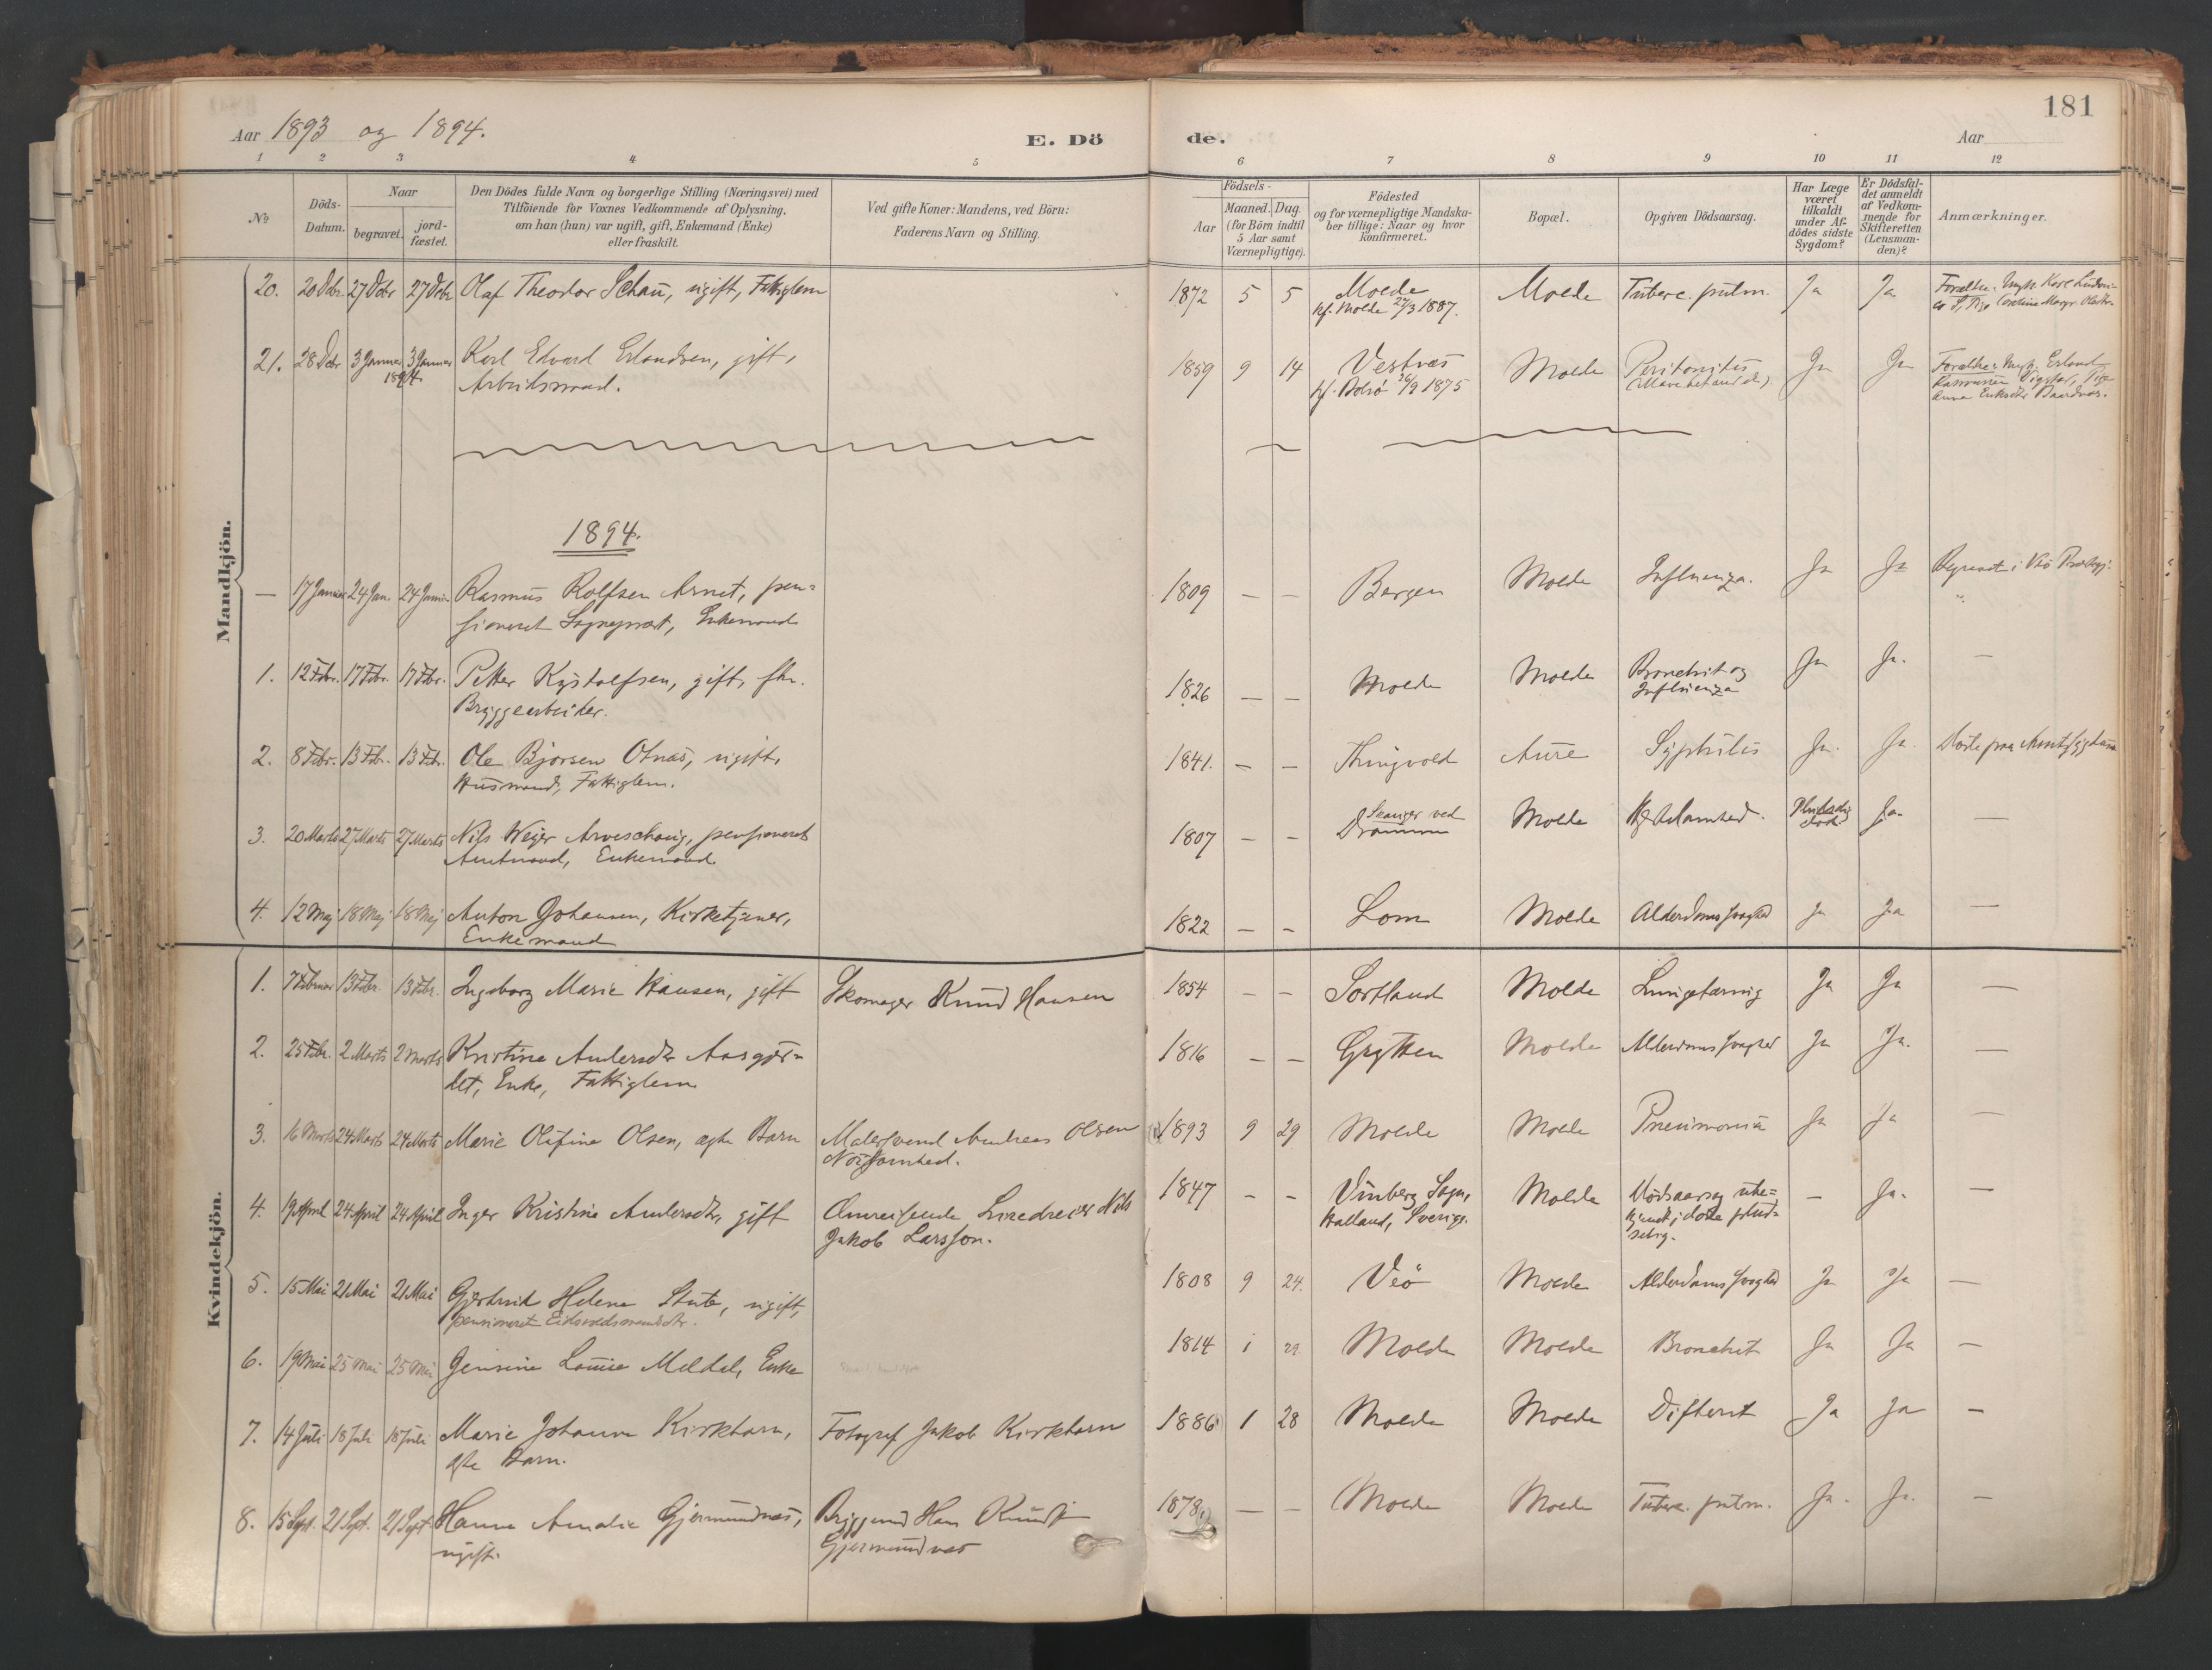 181
Aar 1893 og 1894.
E. Dö
de.
Aar
1 2 3 4 5 6 7 8 9 10 11 12
№
Döds-
Datum.
Naar
begravet.
jord-
fæstet.
Den Dödes fulde Navn og borgerlige Stilling (Næringsvei) med
Tilföiende for Voxnes Vedkommende af Oplysning,
om han (hun) var ugift, gift, Enkemand (Enke)
eller fraskilt.
Ved gifte Koner: Mandens, ved Börn:
Faderens Navn og Stilling.
Födsels-
Aar
Maaned. Dag.
(for Börn indtil
5 Aar samt
Værnepligtige).
Födested
og for værnepligtige Mandska-
ber tillige: Naar og hvor
konfirmeret.
Bopæl.
Opgiven Dödsaarsag.
Har Læge
været
tilkaldt
under Af-
dödes sidste
Sygdom?
Er Dödsfal-
det anmeldt
af Vedkom-
mende for
Skifteretten
(Lensman-
den)?
Anmærkninger.
Mandkjön.
20. 20 Dcbr 27 Dcbr 27 Dcbr Olaf Theodor Schau, ugift, Fattiglem 1872 5 5 Molde Molde Tuberc. pulm. Ja Ja
kf. Molde 27/3 1887.
21. 28 Dcbr 3 Januar 3 Januar Karl Edvard Erlandsen, gift, 1859 9 14 Vestnæs Molde Peritonitis Ja Ja Forældre: Ungk. Erland
1894. Arbeidsmand. kf. Bolsö 26/9 1875 Rasmussen Pige
Anna
1894.
— 17 Januar 24 Jan. 24 Januar Rasmus Rolfsen Arnet, pen- 1809 — — Bergen Molde Influenza. Ja Ja Begravet i Veö
sioneret Sogneprest, Enkemand
1. 12 Febr. 17 Febr. 17 Febr. Petter Kystolfsen, gift, fhv. 1826 — — Molde Molde Bronchit og Ja Ja. —
Bryggearbeider. Influenza
2. 8 Febr. 13 Febr. 13 Febr. Ole Bjorsen Otnæs, ugift, 1841. — — Thingvold Aure Syphilis Ja. Ja. Døde paa Amtssygehuset
Husmand, Fattiglem.
3. 20 Marts 27 Marts 27 Marts Nils Weyer Arveschoug, pensioneret 1807 — — Skouger ved Molde Ja. —
Amtmand, Enkemand Drammen
4. 12 Maj 18 Maj 18 Maj Anton Johansen, Kirketjener, 1822 — — Lom Molde Alderdomssvaghed Ja Ja —
Enkemand
Kvindekjön.
1. 7 Februar 13 Febr. 13 Febr. Ingeborg Marie Hansen, gift Skomager Knud Hansen 1854 — — Sortland Molde Lungetæring Ja Ja —
2. 25 Febr. 2 Marts 2 Marts Kristine Andersdtr Aasgjær- 1816 — — Grytten Molde Alderdomssvaghed Ja Ja. —
det, Enke, Fattiglem
3. 16 Marts 24 Marts 24 Marts Marie Olufine Olsen, ægte Barn Malersvend Andreas Olsen 1893 9 29 Molde Molde Pneumonia Ja Ja —
Nöisomhed.
4. 19 April 24 April 24 April Inger Kristine Andersdtr, gift Omreisende Liredreier Nils 1847 — — Vinberg Sogn, Molde Dödsaarsag ube- — Ja. —
Jakob Larsson. Halland, Sverige. kjendt, döde plud-
selig.
5. 15 Mai 21 Mai 21 Mai Gjertrud Helene Stub, ugift, 1808 9 24. Veö Molde Alderdomssvaghed Ja Ja —
pensioneret Eidsvoldsmandsdtr.
6. 19 Mai 25 Mai 25 Mai Jensine Louise Meldal, Enke 1814 1 29 Molde Molde Bronchit Ja Ja —
7. 14 Juli 18 Juli 18 Juli Marie Johanne Kirkhorn, Fotograf Jakob Kirkhorn 1886 1 28 Molde Molde Difterit Ja Ja —
ægte Barn.
8. 15 Sept. 21 Sept. 21 Sept. Hanna Amalie Gjermundnæs, Bryggemd Hans Knuds 1878 — — Molde Molde Tuberc. pulm. Ja. Ja. —
ugift. Gjermundnæs